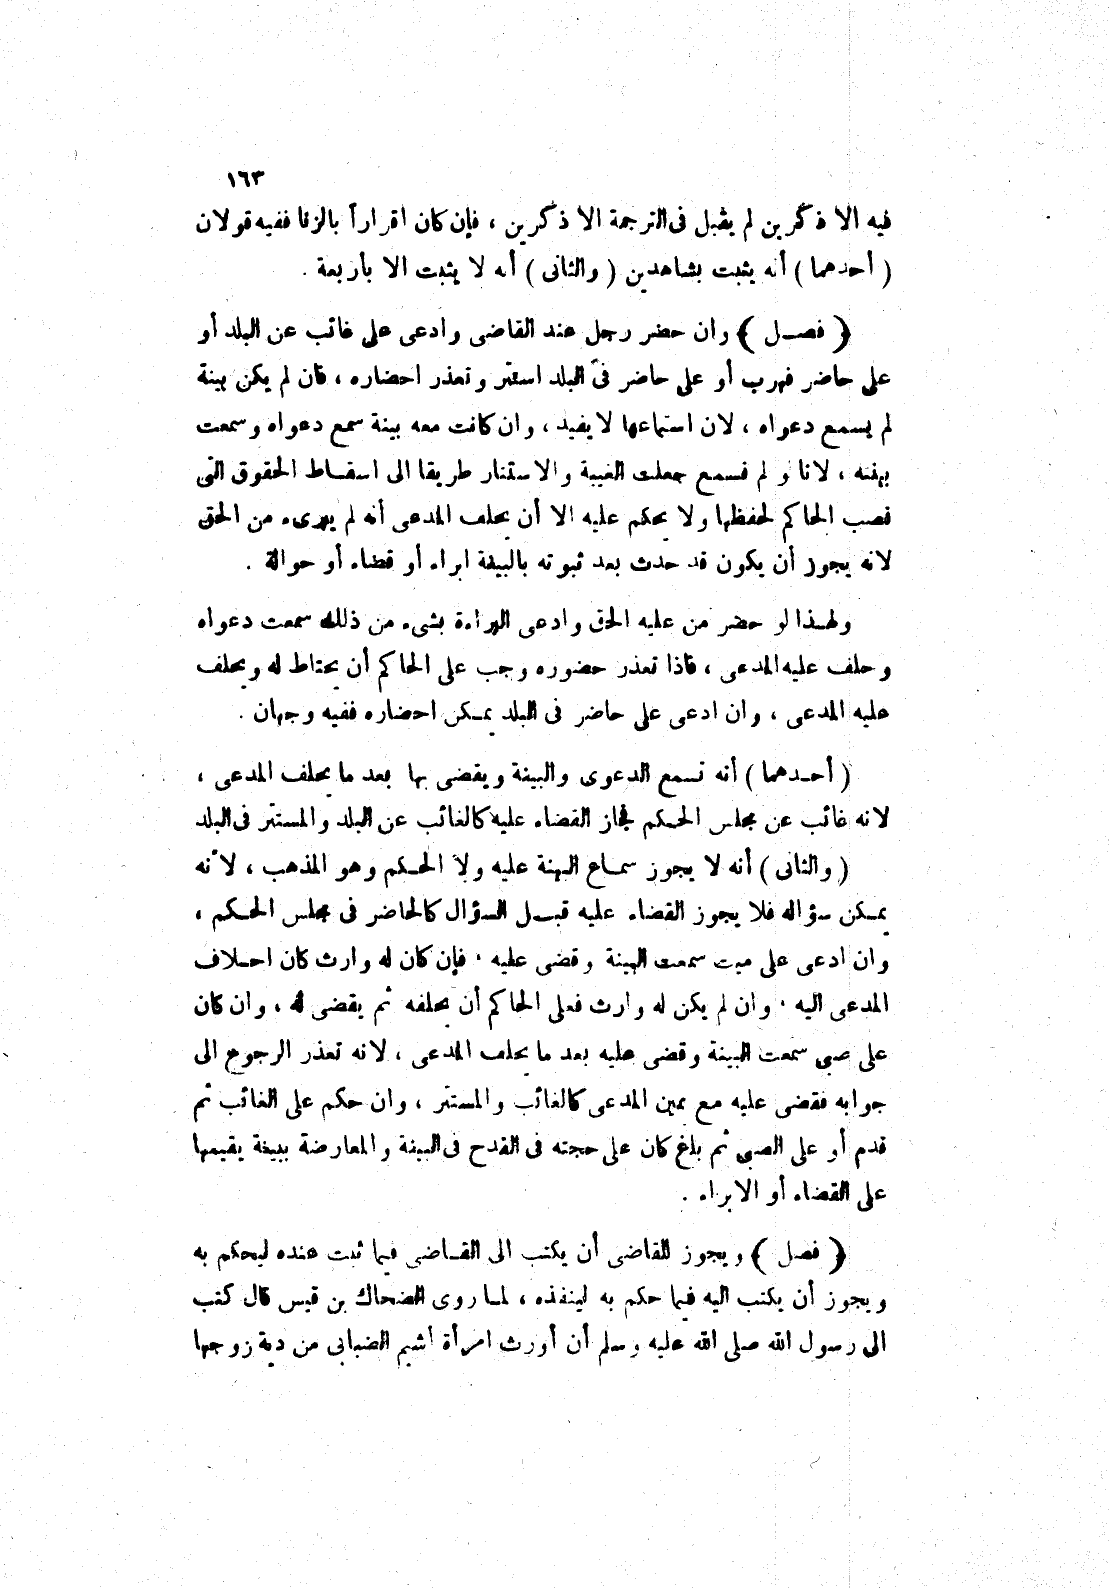 ١٦٣
فيه الا ذكرين لم يقبل فى الترجمة الا ذكرين ، فإن كان اقراراً بالزنا ففيه قولان
( أحدهما ) أنه يثبت بشاهدين ( والثانى ) أنه لا يثبت الا بأربعة .
﴿ فصــل ﴾ وان حضر رجل عند القاضى وادعى على غائب عن البلد أو
على حاضر فهرب أو على حاضر فى البلد استتر وتعذر احضاره ، فان لم يكن بينة
لم يسمع دعواه ، لان استماعها لا يفيد ، وان كانت معه بينة سمع دعواه وسمعت
بينته ، لانا لو لم نسمع جعلت الغيبة والاستتار طريقا الى اسقــاط الحقوق التى
نصب الحاكم لحفظها ولا يحكم عليه الا أن يحلف المدعى أنه لم يبرىء من الحق
لانه يجوز أن يكون قد حدث بعد ثبوته بالبينة ابراء أو قضاء أو حوالة .
ولهــذا لو حضر من عليه الحق وادعى البراءة بشىء من ذلك سمعت دعواه
وحلف عليه المدعى ، فاذا تعذر حضوره وجب على الحاكم أن يحتاط له ويحلف
عليه المدعى ، وان ادعى على حاضر فى البلد يمــكن احضاره ففيه وجهان .
( أحــدهما ) أنه تسمع الدعوى والبينة ويقضى بها بعد ما يحلف المدعى ،
لانه غائب عن مجلس الحــكم فجاز القضاء عليه كالغائب عن البلد والمستتر فى البلد
( والثانى ) أنه لا يجوز سمــاع البينة عليه ولا الحــكم وهو المذهب ، لأنه
يمــكن سؤاله فلا يجوز القضاء عليه قبــل السؤال كالحاضر فى مجلس الحــكم ،
وان ادعى على ميت سمعت البينة وقضى عليه . فإن كان له وارث كان احــلاف
المدعى اليه . وان لم يكن له وارث فعلى الحاكم أن يحلفه ثم يقضى له ، وان كان
على صبى سمعت البينة وقضى عليه بعد ما يحلف المدعى ، لانه تعذر الرجوع الى
جوابه فقضى عليه مـع يمين المدعى كالغائب والمستتر ، وان حكم على الغائب ثم
قدم أو على الصبى ثم بلغ كان على حجته فى القدح فى البينة والمعارضة ببينة يقيمها
على القضاء أو الابراء .
﴿ فصل ﴾ ويجوز للقاضى أن يكتب الى القــاضى فيما ثبت عنده ليحكم به
ويجوز أن يكتب اليه فيما حكم به لينفذه ، لمــا روى الضحاك بن قيس قال كتب
الى رسول الله صلى الله عليه وسلم أن أورث امرأة أشيم الضبابى من دية زوجها